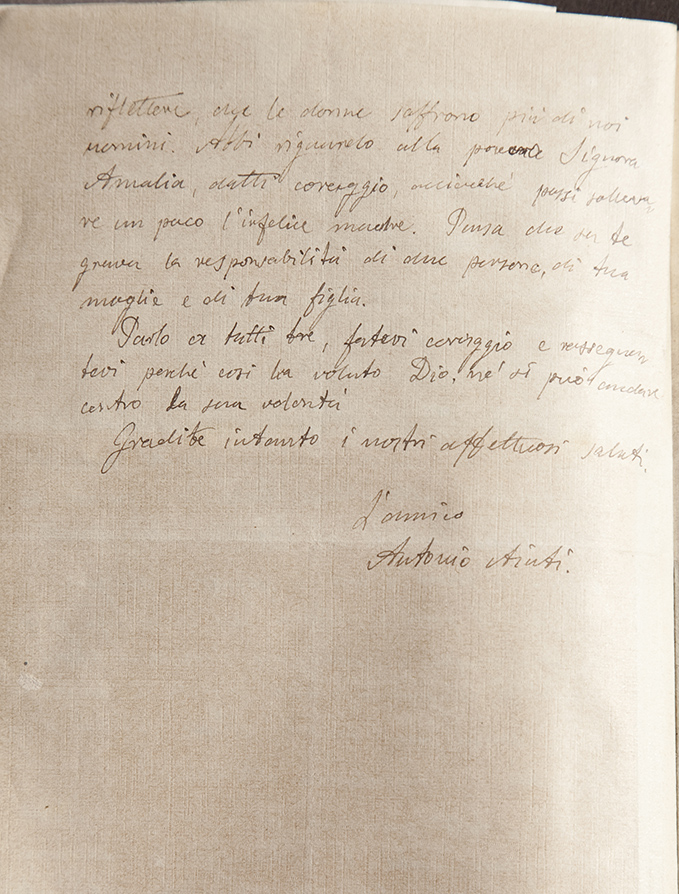 riflettere, che le donne soffrono più di noi
uomini. Abbi riguardo alla povera Signora
Amalia, datti coraggio, acciocché possi solleva-
re un poco l'infelice madre. Pensa che su te
grava la responsabilità di due persone, di tua
moglie e di tua figlia.
Parlo a tutti tre, fatevi coraggio e rassegna-
tevi perché così ha voluto Dio, né si può andare
contro la sua volontà
Gradite intanto i nostri affettuosi saluti.
L'amico
Antonio